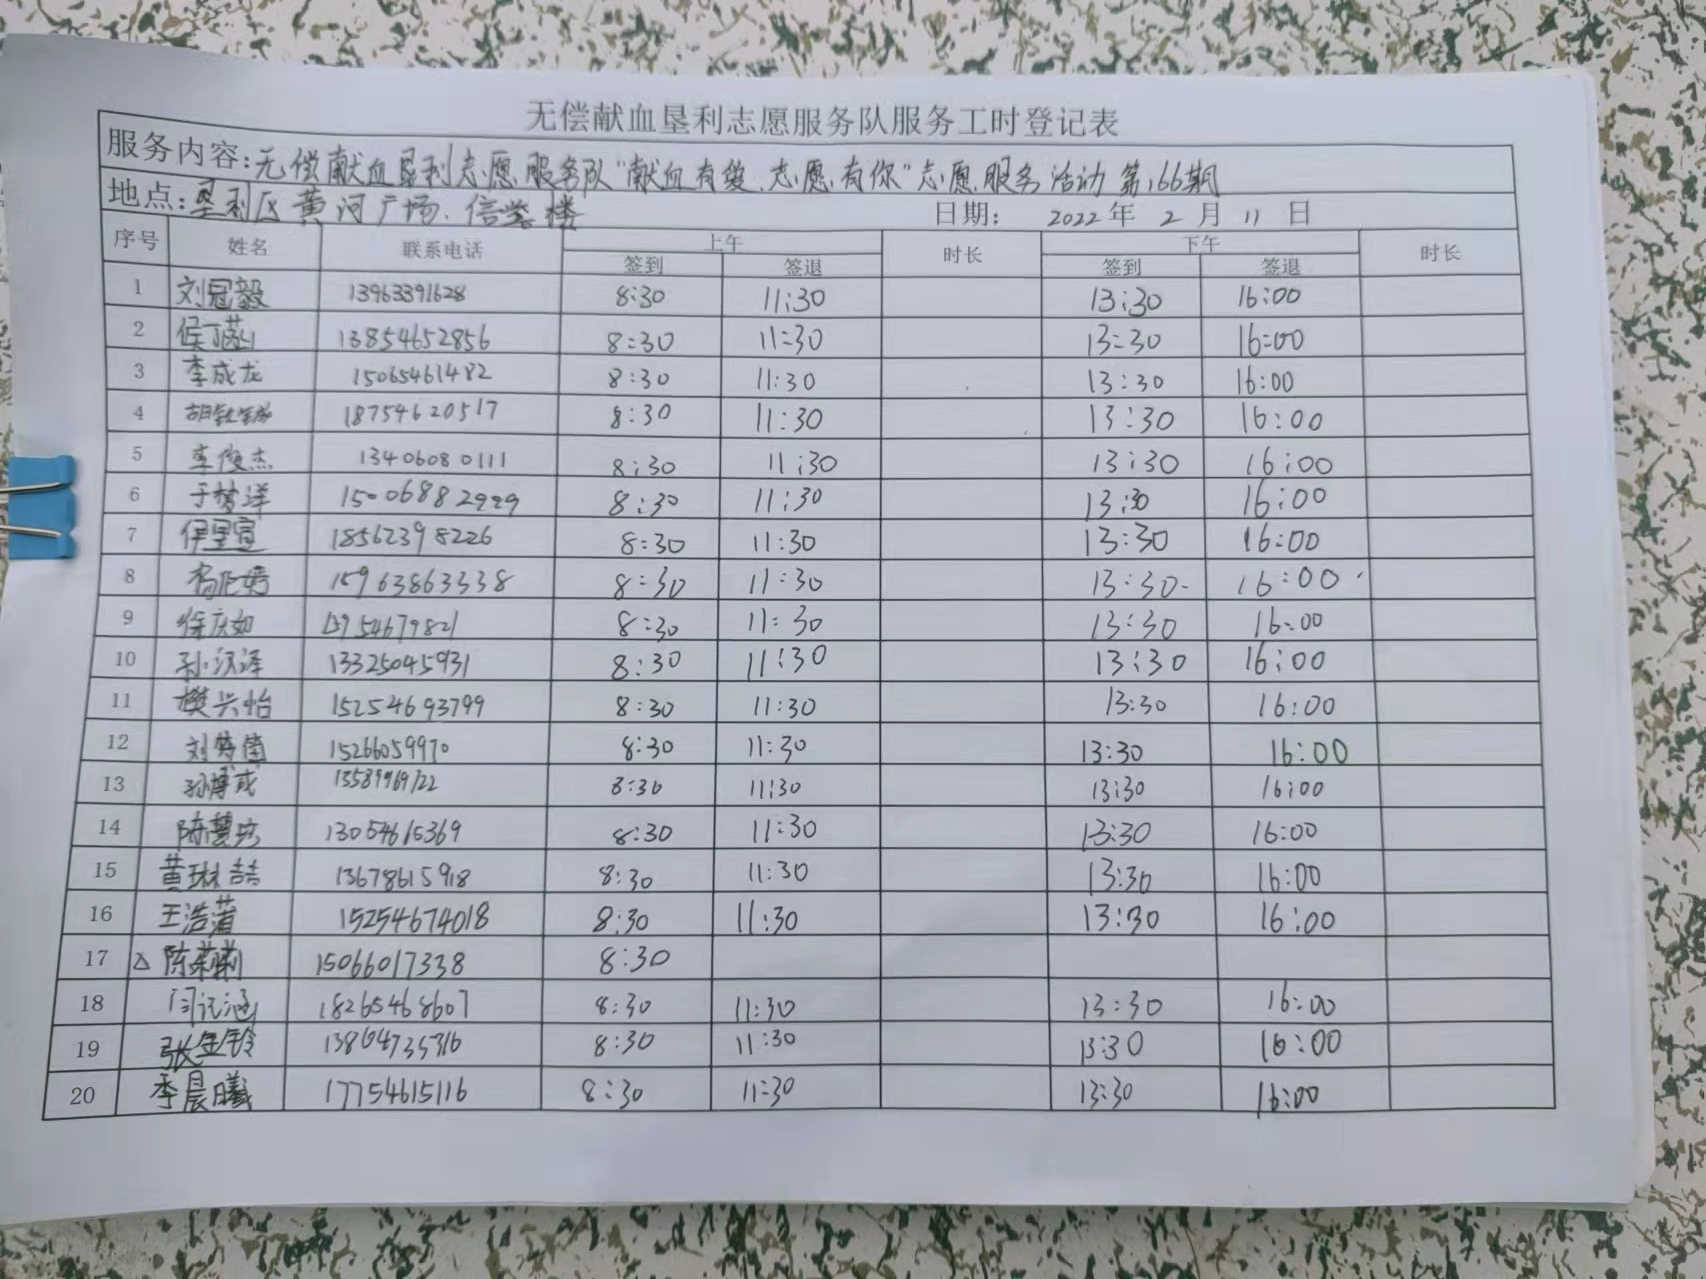 无偿献血垦利志愿服务队服务工时登记表
服务内容:无偿献血垦利志愿服务队"献血有爱、志愿有你"志愿服务活动 第166期
地点:垦利区黄河广场、信誉楼 日期: 2022年 2月 11日
序号 姓名 联系电话 上午 时长 下午 时长
签到 签退 签到 签退
1 刘冠毅 13963391628 8:30 11:30 13:30 16:00
2 13854652856 8:30 11:30 13:30 16:00
3 李成龙 15065461482 8:30 11:30 13:30 16:00
4 18754620517 8:30 11:30 13:30 16:00
5 李俊杰 13406080111 8:30 11:30 13:30 16:00
6 于梦洋 15006882929 8:30 11:30 13:30 16:00
7 18562398226 8:30 11:30 13:30 16:00
8 15963863338 8:30 11:30 13:30 16:00
9 徐庆如 13954679821 8:30 11:30 13:30 16:00
10 孙汉泽 13325045931 8:30 11:30 13:30 16:00
11 樊兴怡 15254693799 8:30 11:30 13:30 16:00
12 15266059970 8:30 11:30 13:30 16:00
13 孙博成 13589969122 8:30 11:30 13:30 16:00
14 13054615369 8:30 11:30 13:30 16:00
15 黄琳喆 13678615918 8:30 11:30 13:30 16:00
16 15254674018 8:30 11:30 13:30 16:00
17 △陈莉莉 15066017338 8:30
18 18265468607 8:30 11:30 13:30 16:00
19 张金铃 13864735316 8:30 11:30 13:30 16:00
20 季晨曦 17754615116 8:30 11:30 13:30 16:00